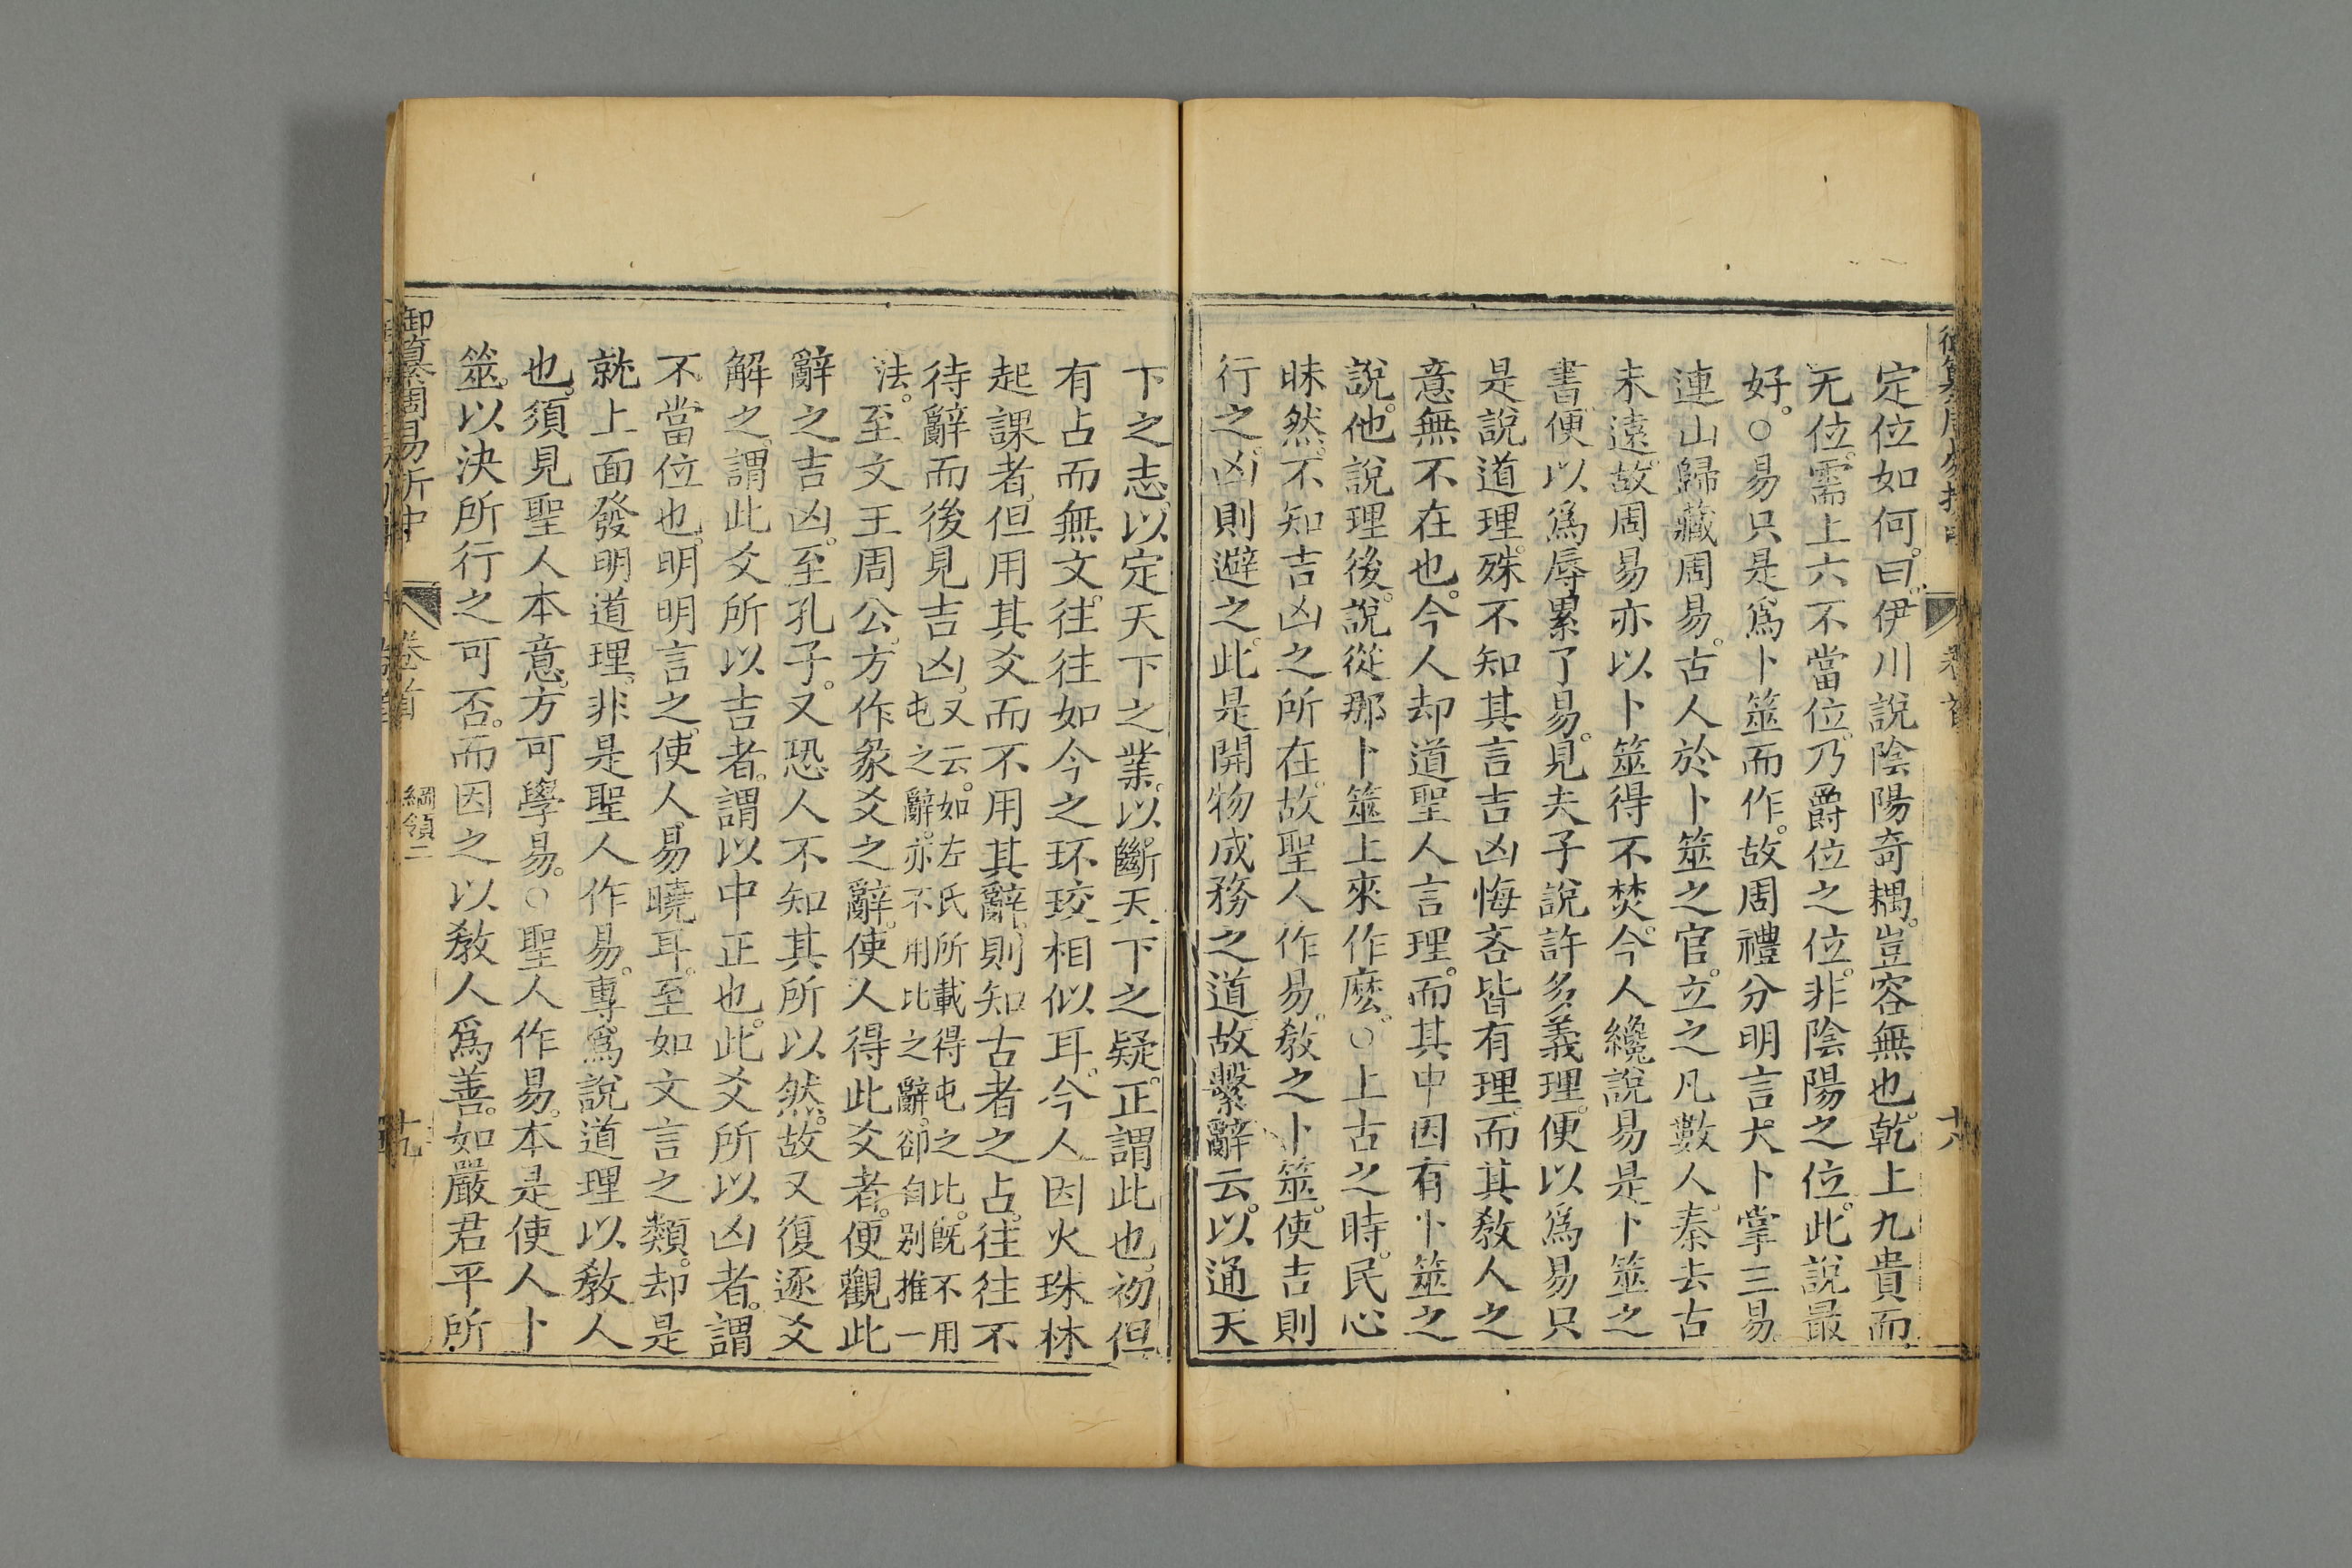 定位如何。曰。伊川說陰陽奇耦。豈容無也。乾上九貴而
无位。需上六不當位。乃爵位之位。非陰陽之位。此說最
好。○易只是為卜筮而作。故周禮分明言太卜掌三易。
連山歸藏周易。古人於卜筮之官。立之凡數人。秦去古
未遠。故周易亦以卜筮得不焚。今人纔說易是卜筮之
書。便以為辱累了易。見夫子說許多義理。便以為易只
是說道理。殊不知其言吉凶悔吝皆有理。而其教人之
意無不在也。今人却道聖人言理。而其中因有卜筮之
說。他說理後。說從那卜筮上來作麽。○上古之時。民心
昧然。不知吉凶之所在。故聖人作易。教之卜筮。使吉則
行之。凶則避之。此是開物成務之道。故繫辭云。以通天
下之志。以定天下之業。以斷天下之疑。正謂此也。初但
有占而無文。往往如今之环珓相似耳。今人因火珠林
起課者。但用其爻而不用其辭。則知古者之占。往往不
待辭而後見吉凶。又云。如左氏所載得屯之比。旣不用
屯之辭。亦不用比之辭。卻自別推一
法。至文王周公。方作彖爻之辭。使人得此爻者。便觀此
辭之吉凶。至孔子。又恐人不知其所以然。故又復逐爻
解之。謂此爻所以吉者。謂以中正也。此爻所以凶者。謂
不當位也。明明言之。使人易曉耳。至如文言之類。却是
就上面發明道理。非是聖人作易。專為說道理以教人
也。須見聖人本意。方可學易。○聖人作易。本是使人卜
筮。以決所行之可否。而因之以教人為善。如嚴君平所
御纂周易折中
卷首
綱領二
十九